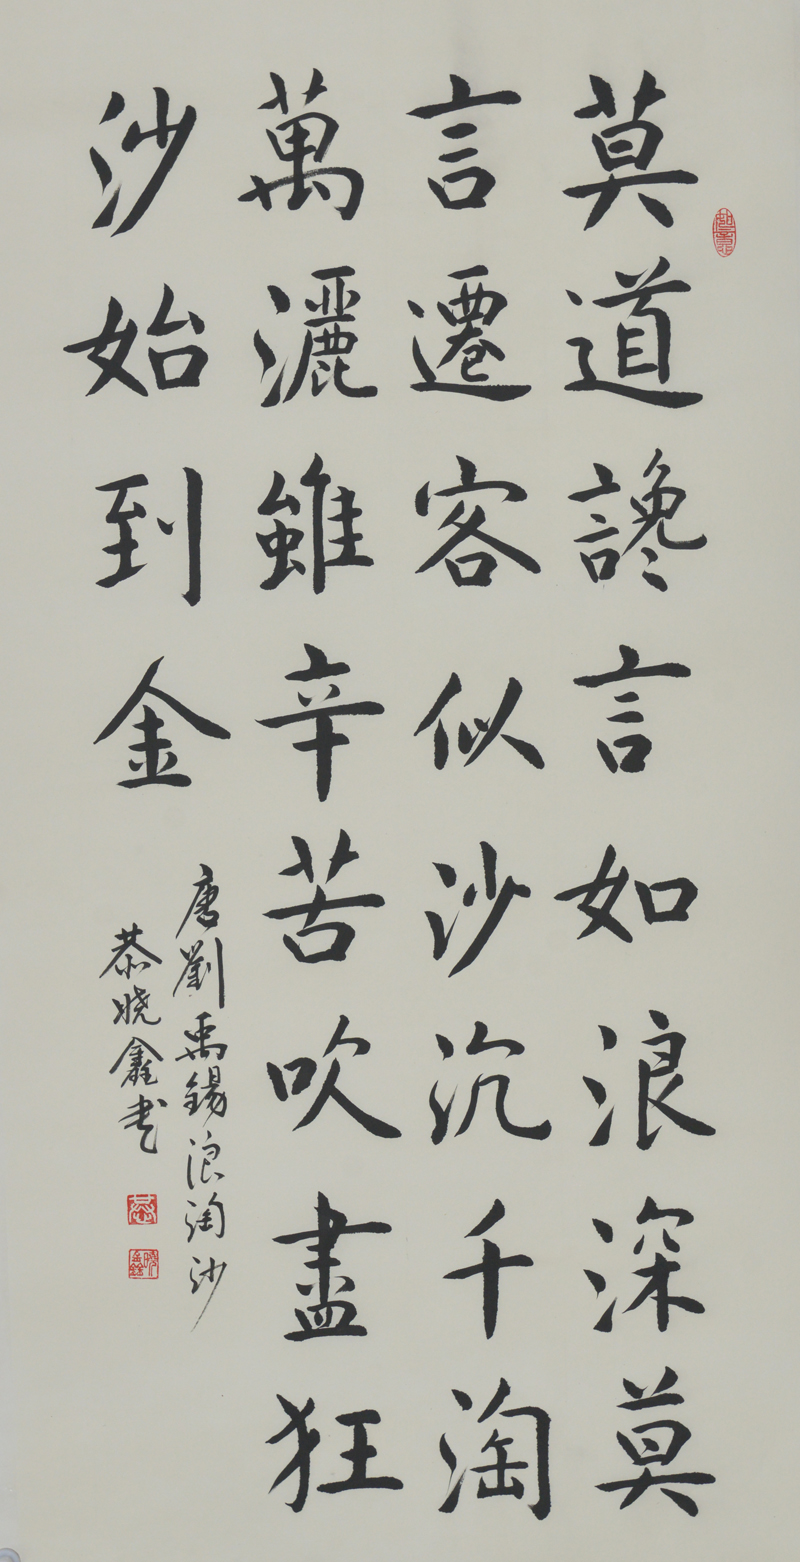 莫道讒言如浪深莫
言遷客似沙沉千淘
萬灑雖辛苦吹盡狂
沙始到金
唐劉禹錫浪淘沙
恭晓鑫书